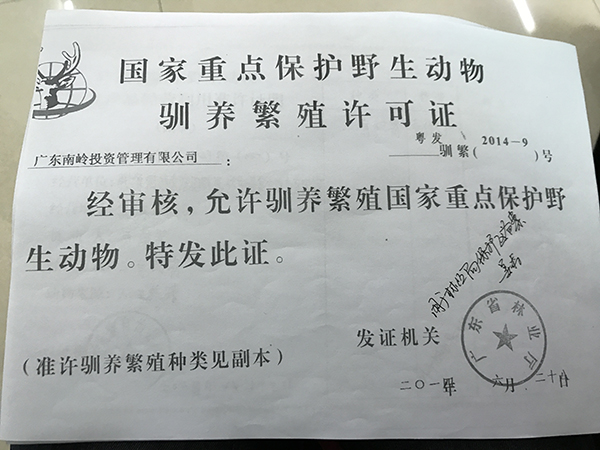 国家重点保护野生动物
驯养繁殖许可证
粤发
驯繁(2014-9)号
广东南岭投资管理有限公司：
经审核,允许驯养繁殖国家重点保护野
生动物。特发此证。
发证机关
广东省林业厅
(准许驯养繁殖种类见副本)
二〇一四年 六月 二十日